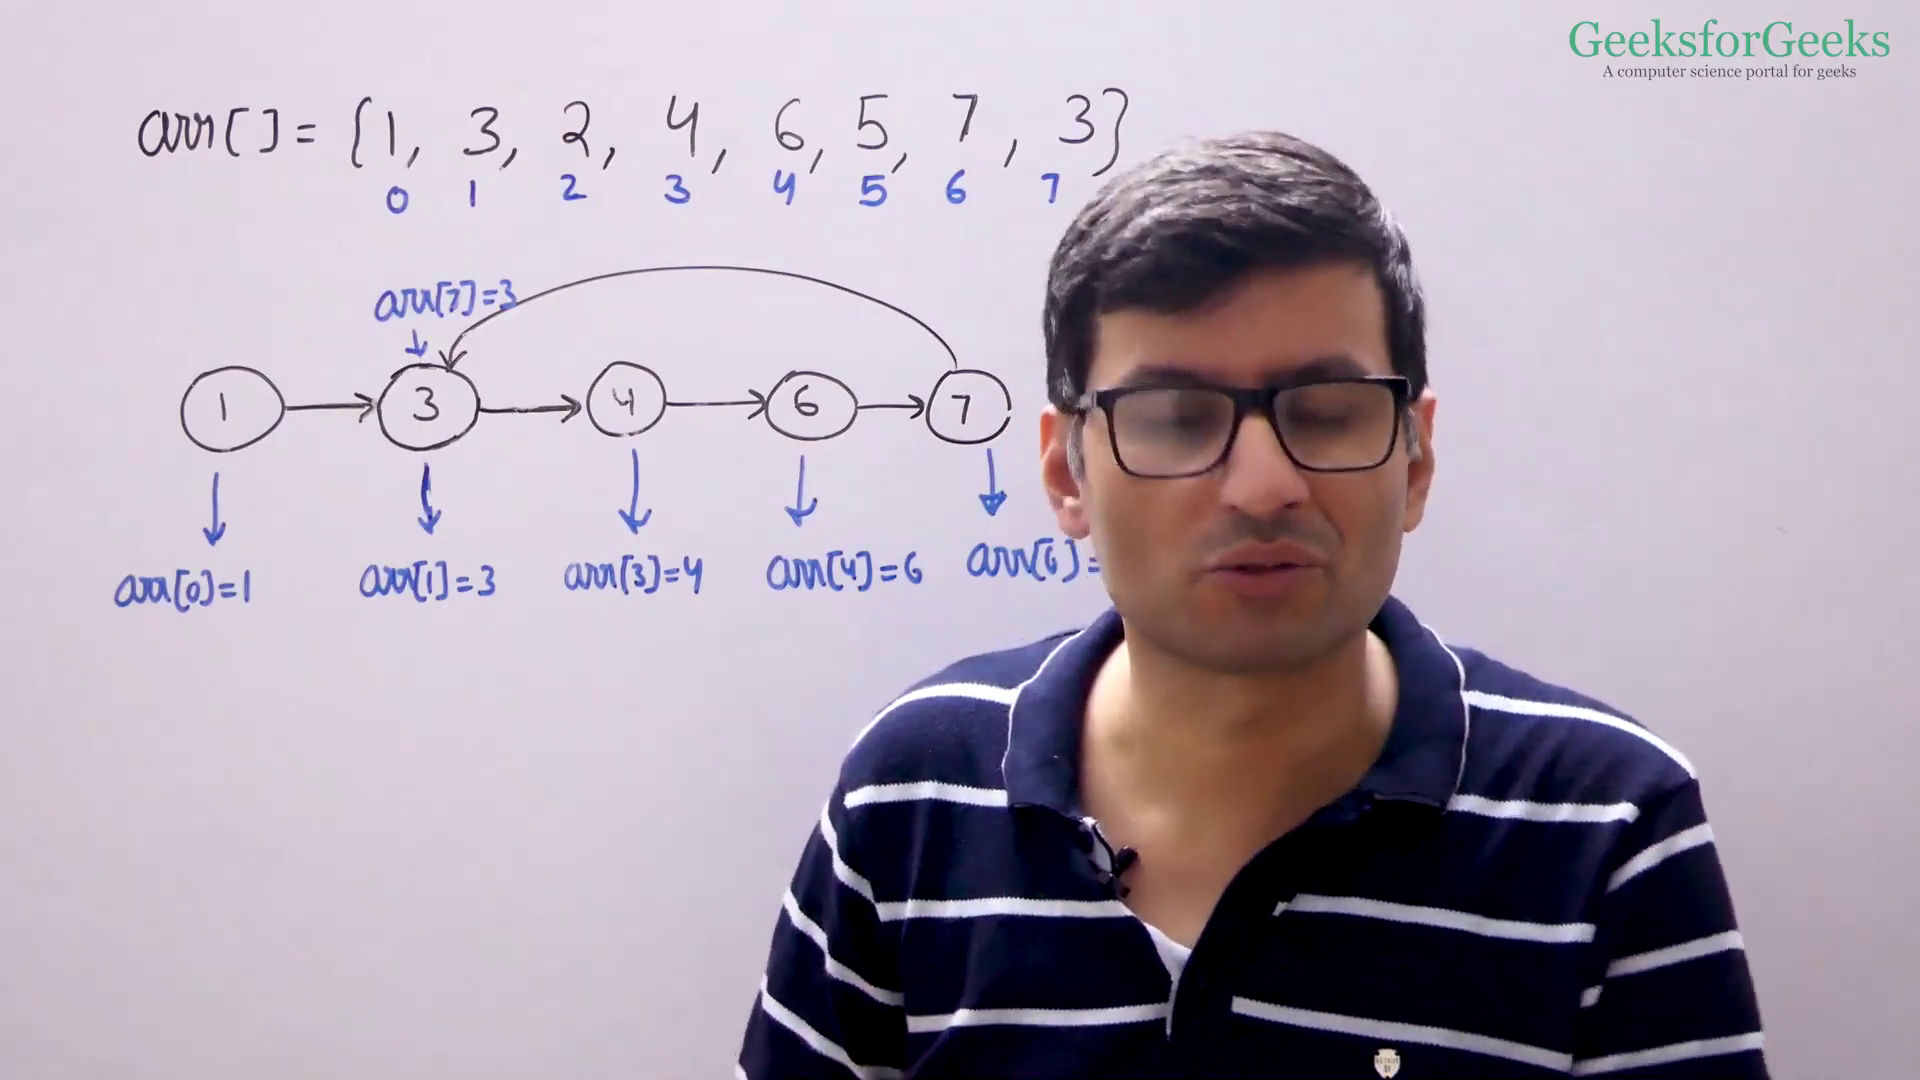 GeeksforGeeks
A computer science portal for geeks
arr[] = {1, 3, 2, 4, 6, 5, 7, 3}
0 1 2 3 4 5 6 7
arr[7]=3
1 3 4 6 7
arr[0]=1 arr[1]=3 arr[3]=4 arr[4]=6 arr[6]=